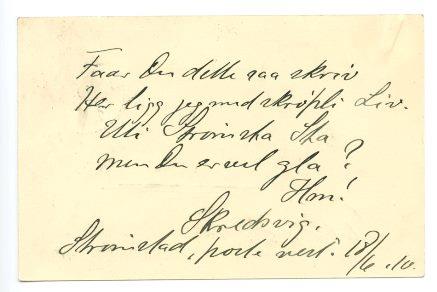 Faar Du dette saa skriv
Her ligg jeg med skrøpli Liv.
Uti Strømsta Sta
men Du er vel gla?
Hm!
Skredsvig.
Strömstad, poste rest. 18/6.10.